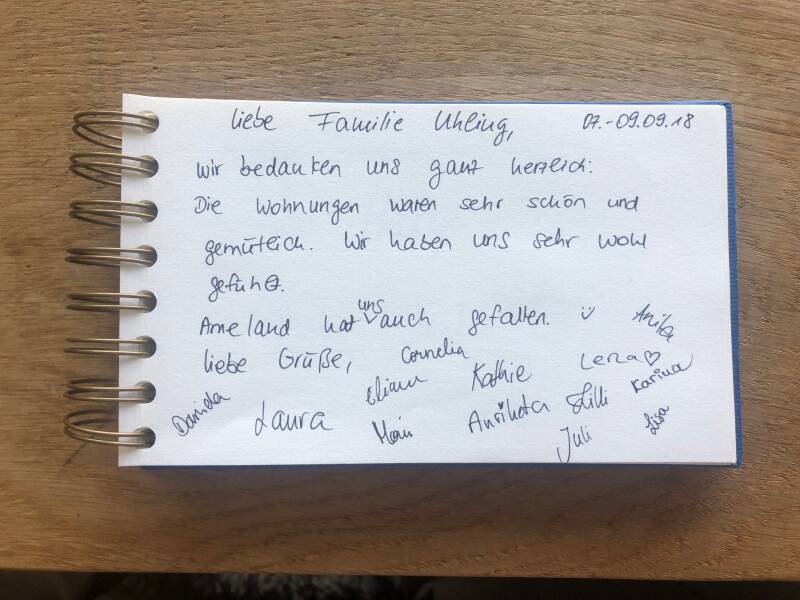 liebe Familie Uhling, 07.-09.09.18
wir bedanken uns ganz herzlich:
Die Wohnungen waren sehr schön und
gemütlich. Wir haben uns sehr wohl
gefühlt.
Ameland hat uns auch gefallen. Anika
liebe Grüße, Cornelia Kathie Lena♡ Karina
Daniela Laura Juli Lisa